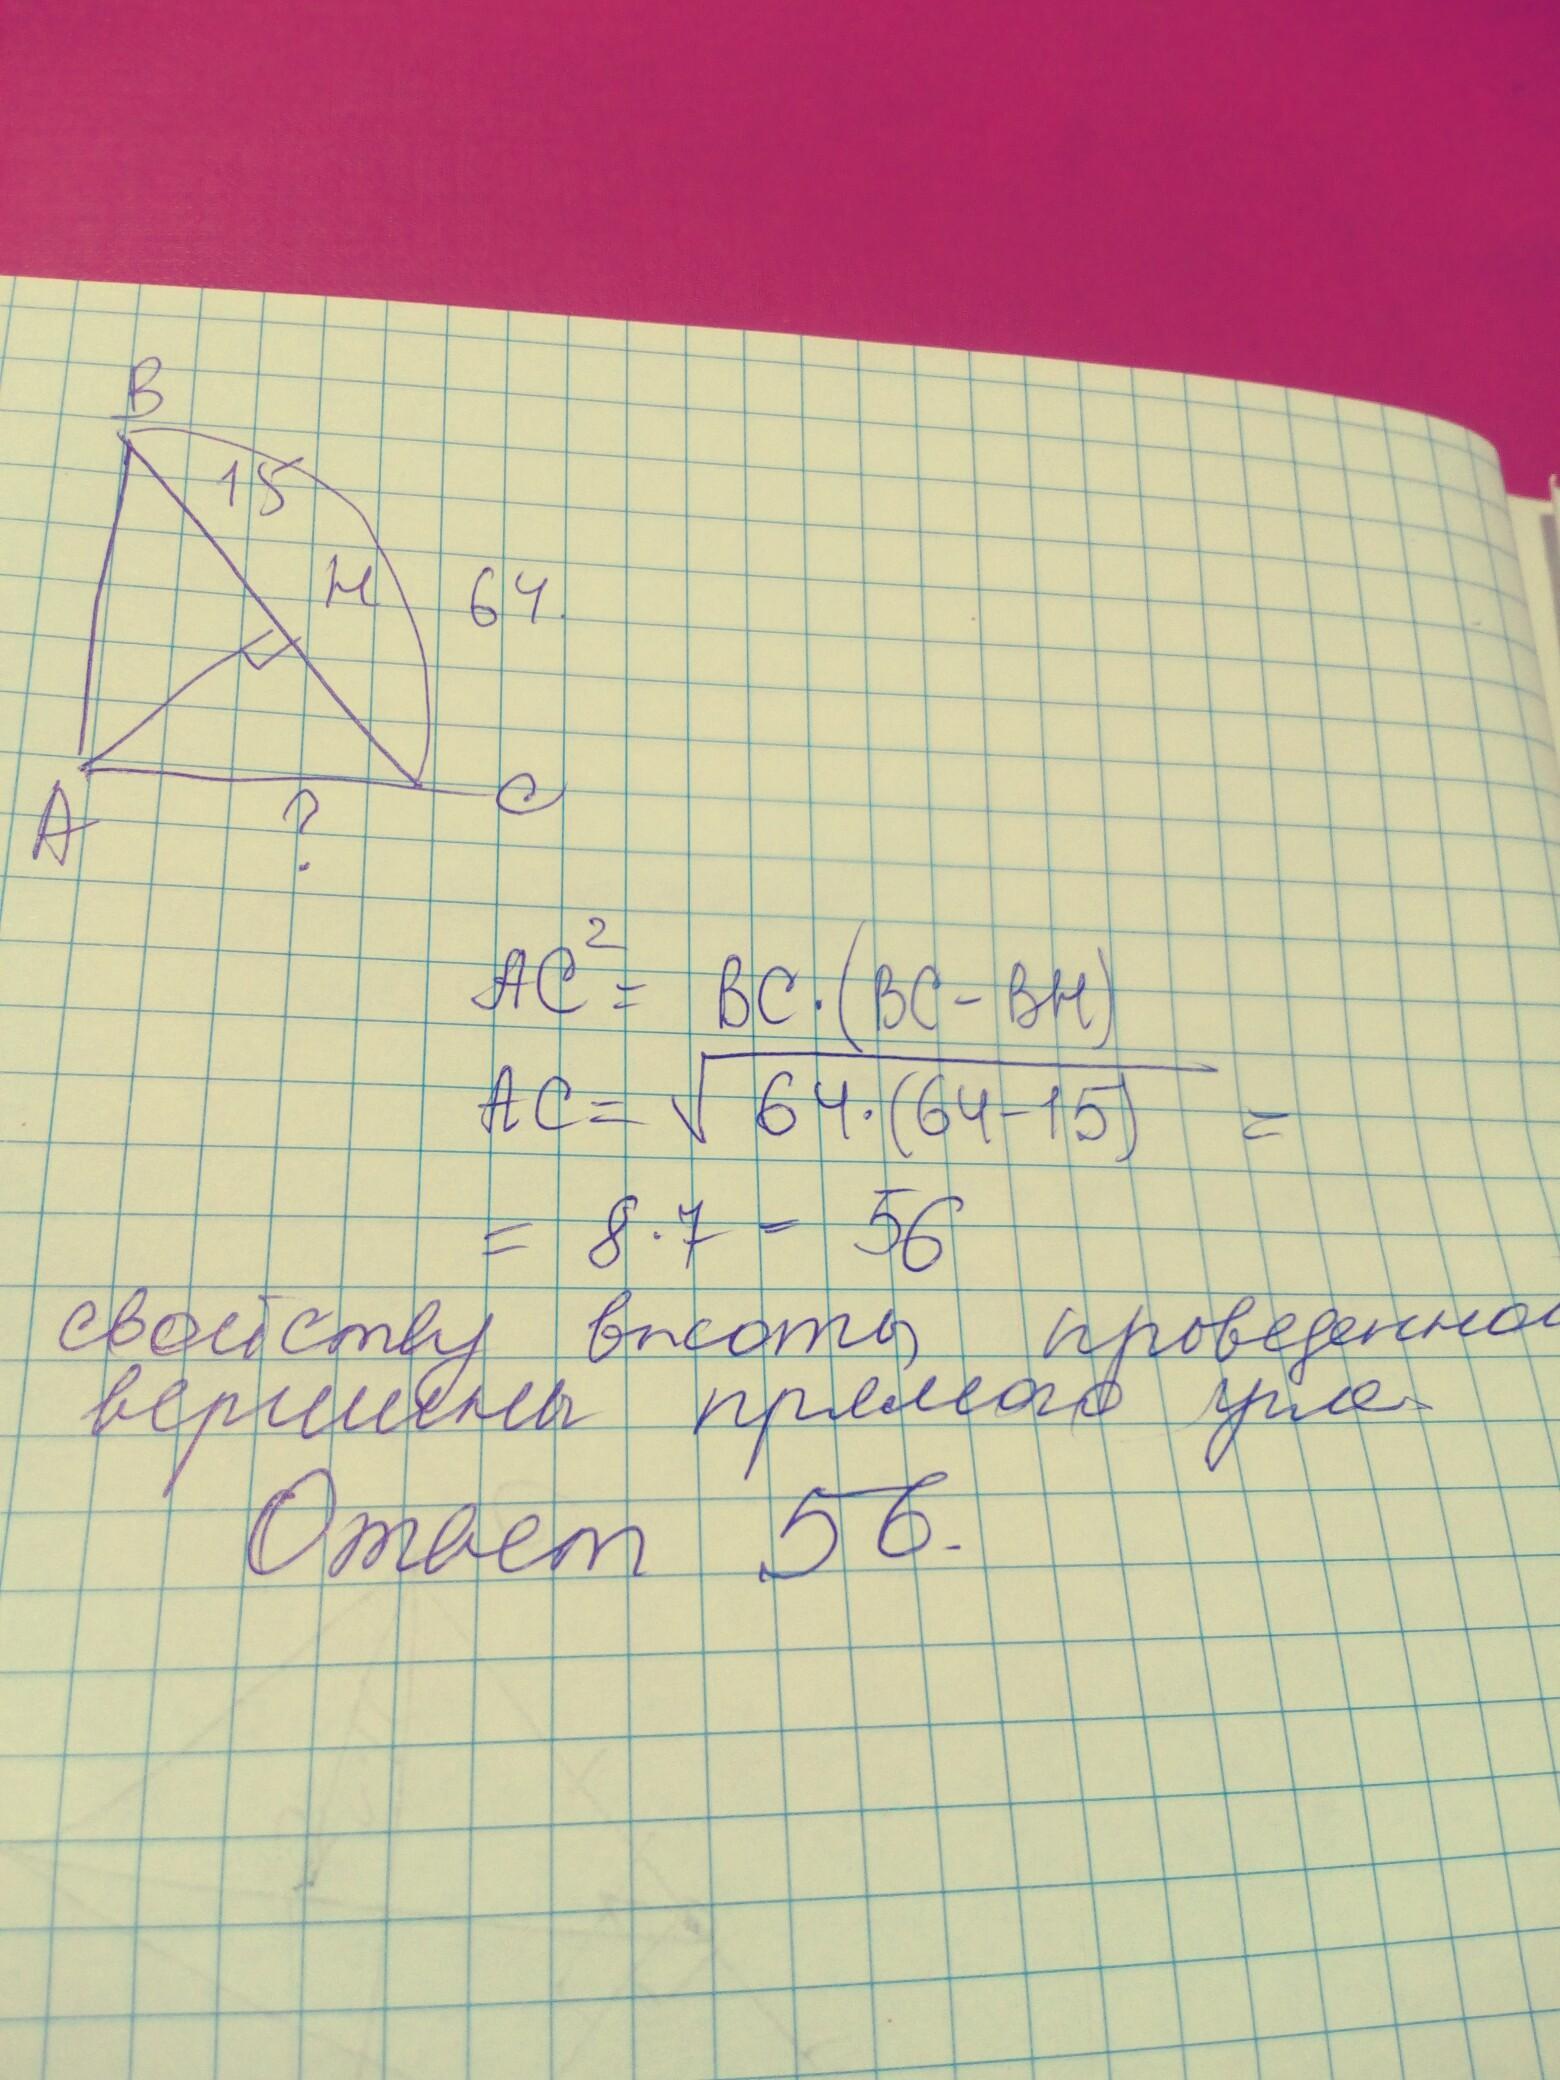 B
15
H
64.
A
?
C
AC² = BC·(BC-BH)
AC = √64·(64-15) =
= 8·7 = 56
свойству высоты проведенной
вершины прямого угла
Ответ 56.